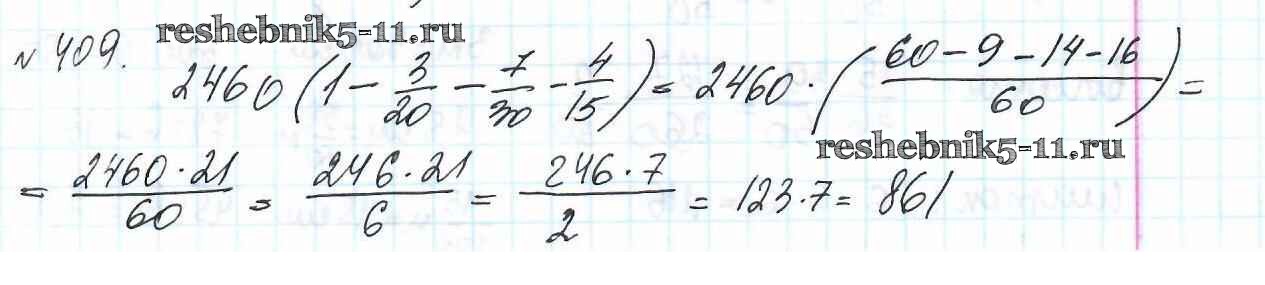 reshebnik5-11.ru
№ 409.
2460 (1 - 3/20 - 7/30 - 4/15) = 2460 · ((60 - 9 - 14 - 16)/60) =
reshebnik5-11.ru
= (2460 · 21)/60 = (246 · 21)/6 = (246 · 7)/2 = 123 · 7 = 861